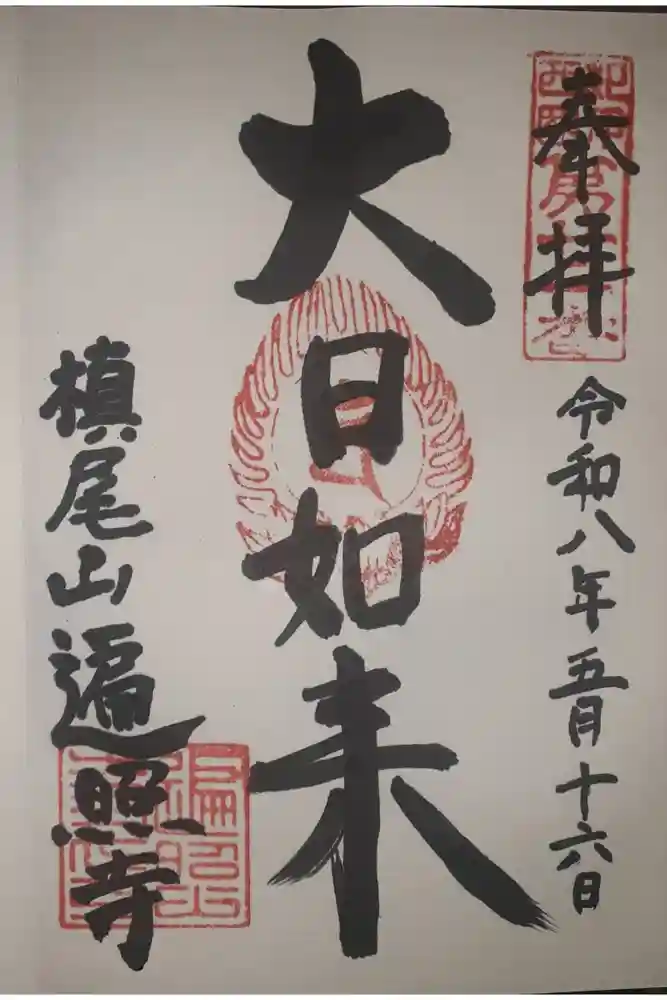 奉拝
令和八年五月十六日
大日如来
槙尾山遍照寺